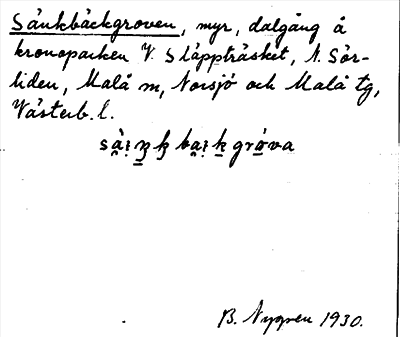 Sänkbäckgroven, myr, dalgång å
kronoparken V. Släppträsket, N. Sör-
liden, Malå m, Norsjö och Malå tg,
Västerb. l.
B. Nygren 1930.